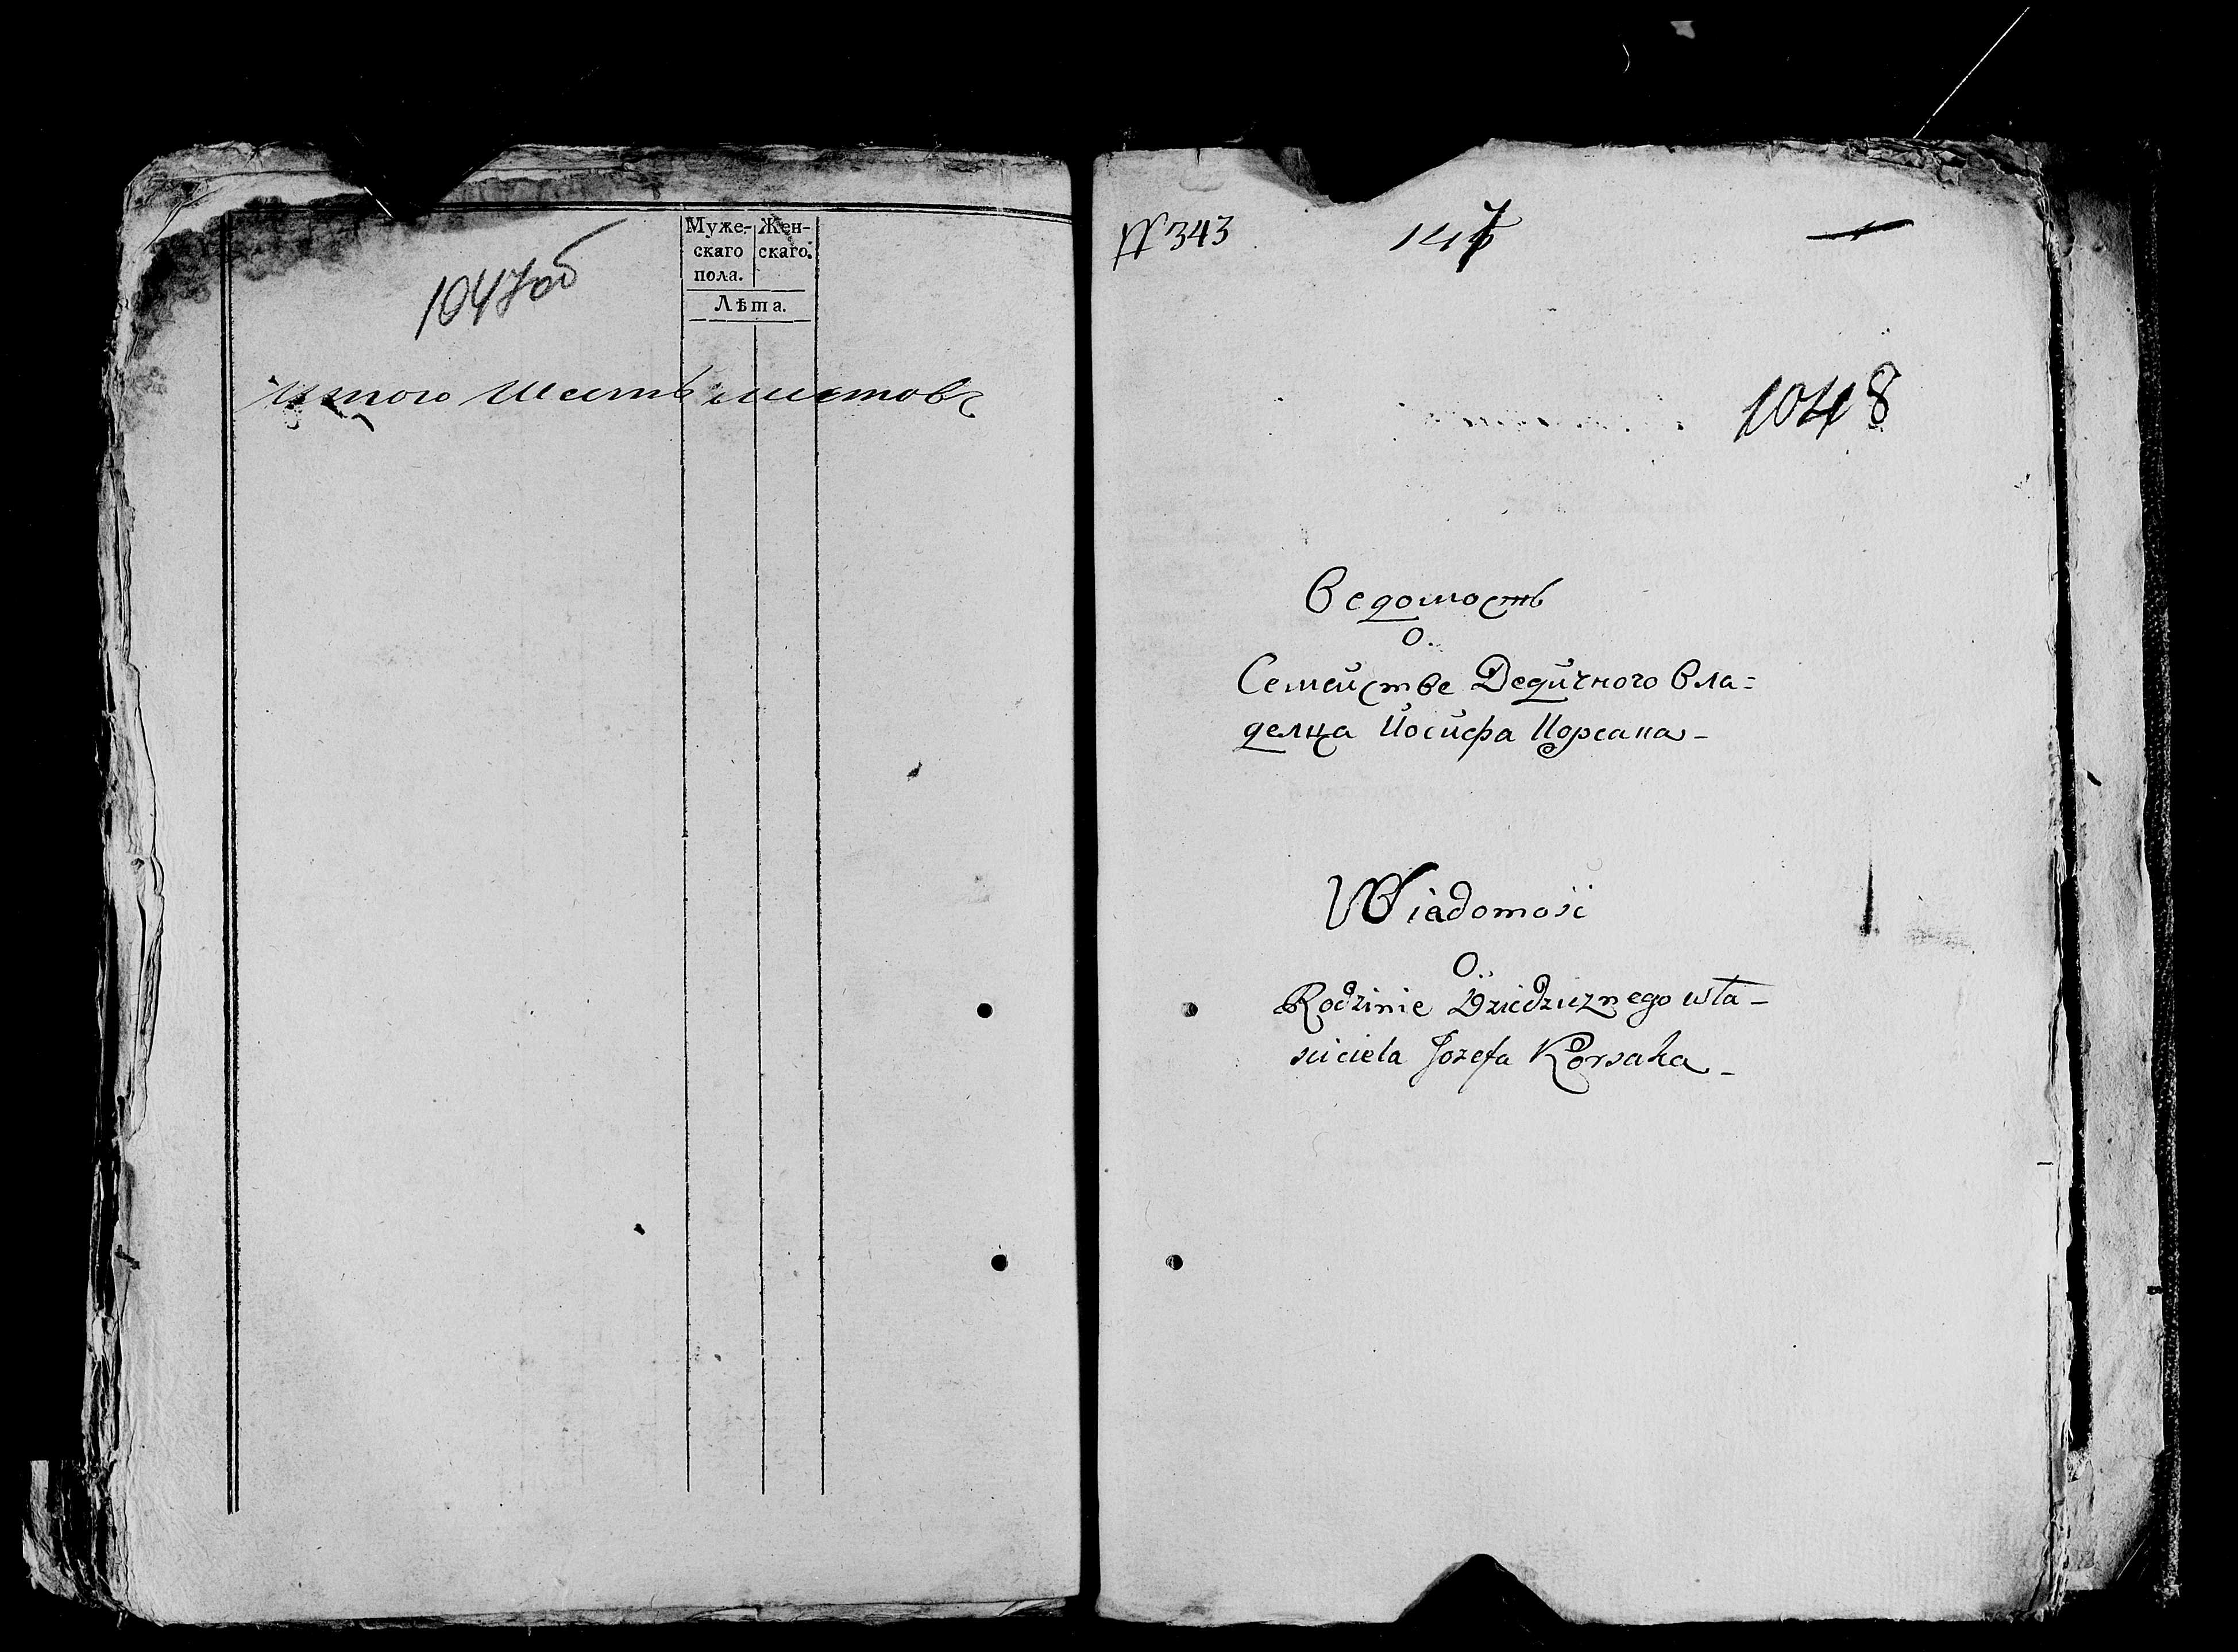 Муже-
скаго
пола.
Жен-
скаго.
Лѣта.
1047об
Итого Шесть листовъ
№ 343
147
1048
Ведомость
О.
Семействе Дедичного Вла=
делца Иосифа Корсака-
Wiadomość
O.
Rodzinie Dziedzicznego wła-
sciciela Jozefa Korsaka-